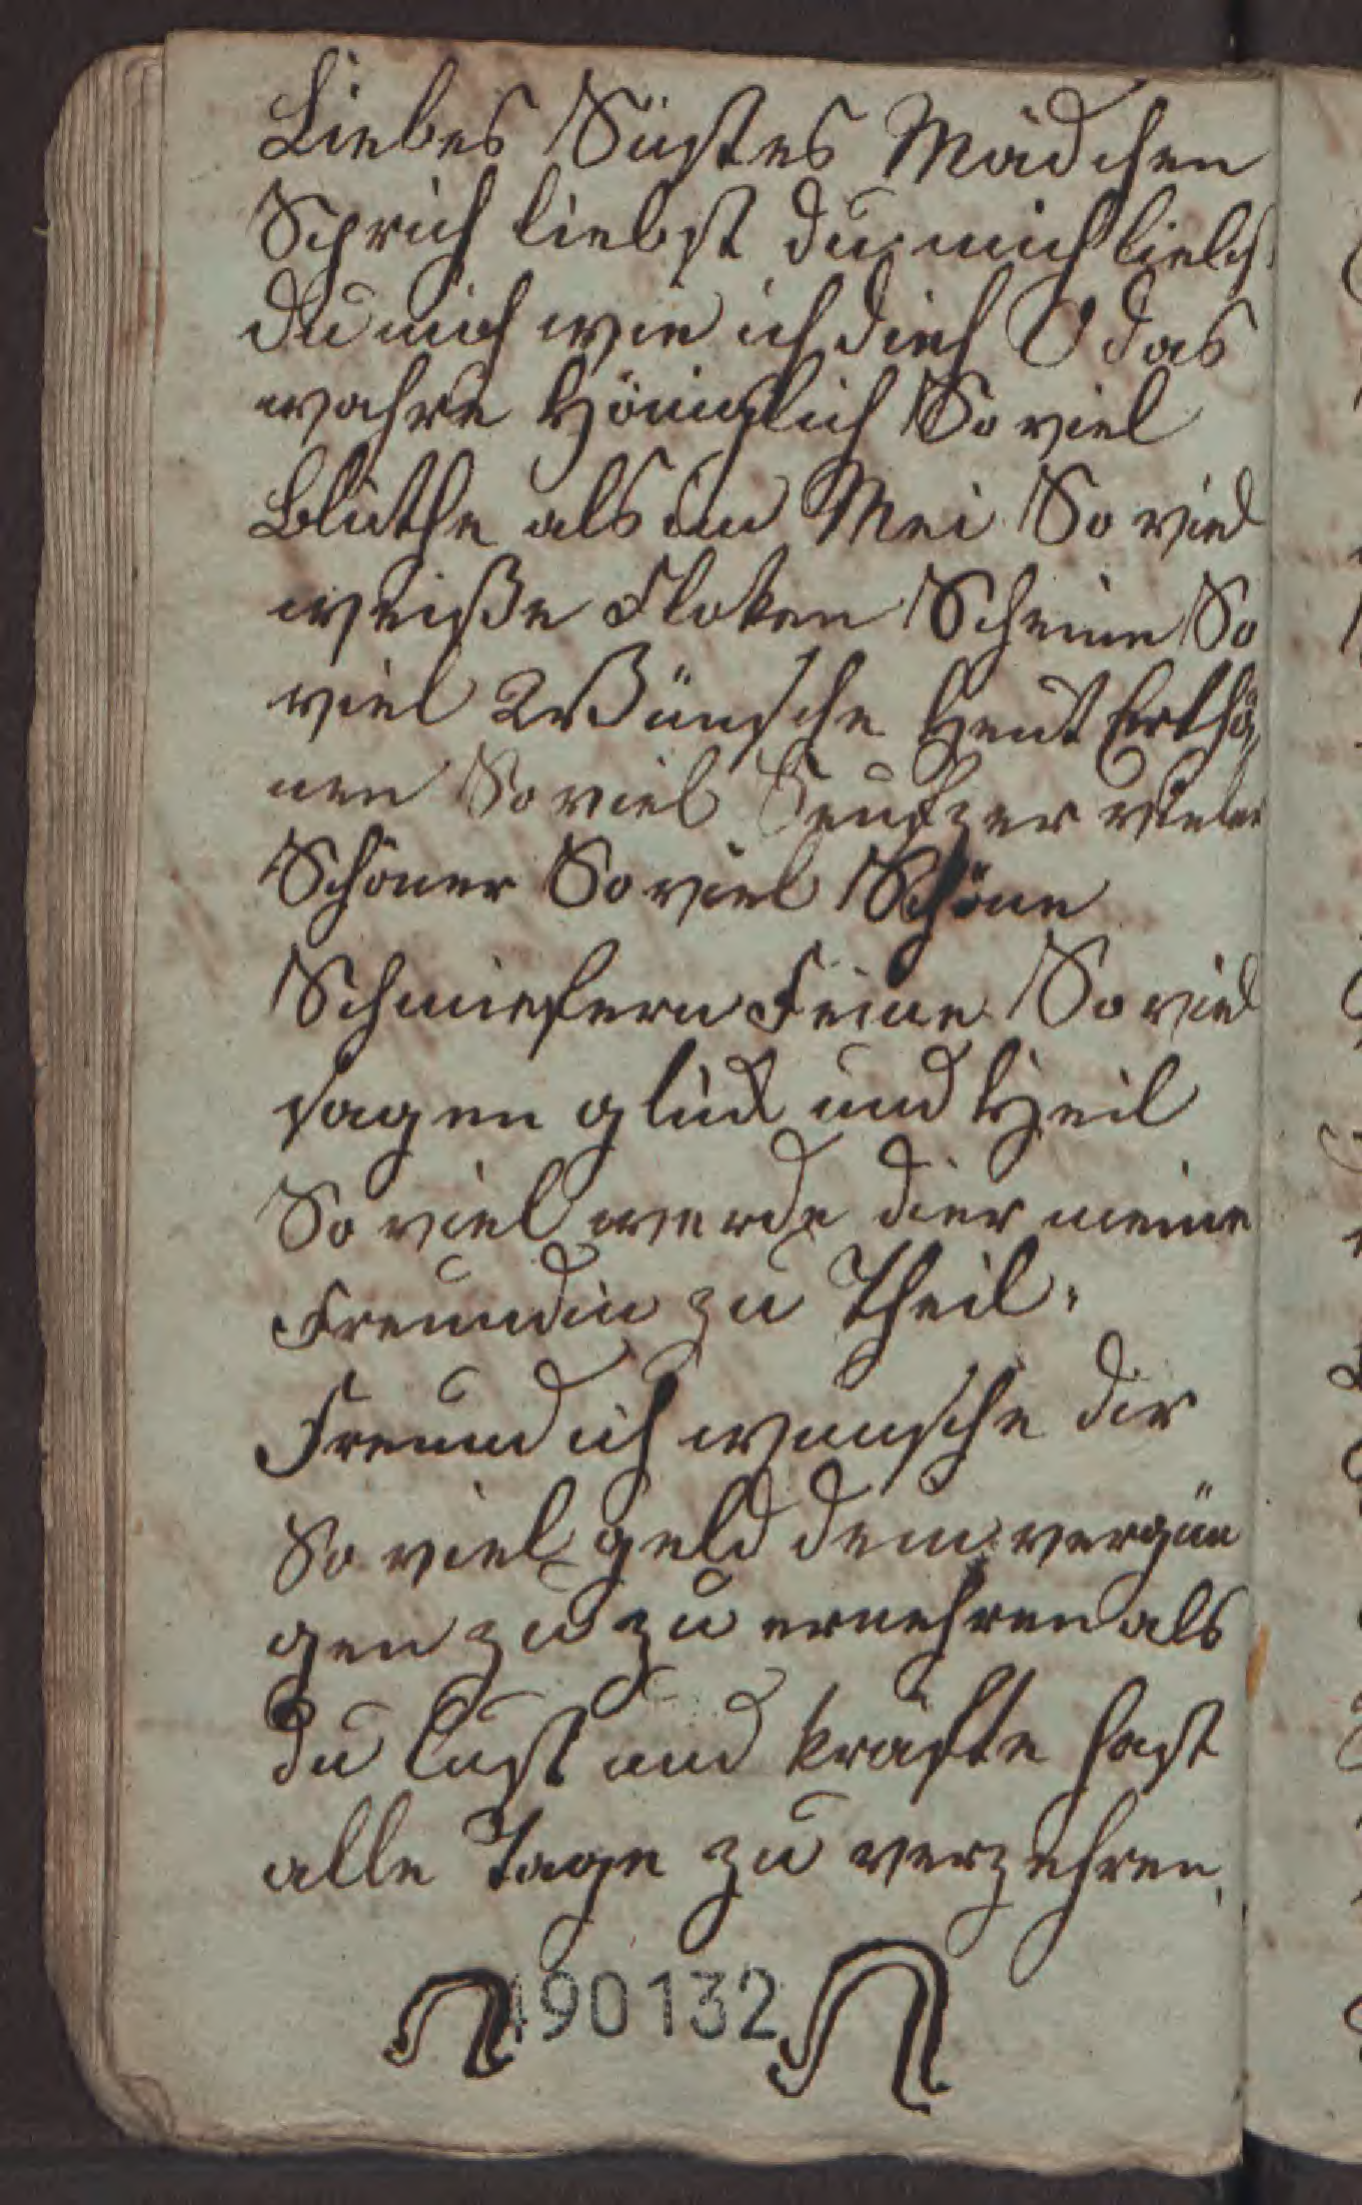 Liebes Süstes Mädchen
Sprich liebst du mich liebst
du mich wie ich dich O das
wahre Höniglich So viel
Blüthe als im Mei So viel
weiße Floken Scheine So
viel Wünsche heut Erthö,
nen So viel Seufzer vieler
Schöner So viel Schöne
Schmiefern Feine So viel
sagen glück und Heil
So viel werde dier meine
Freundin zu Theil.
Freund ich wunsche dir
So viel geld dein vergün
gen zu zu ernehren als
du Lust und kräfte hast
alle Tage zu verzehren.
490132